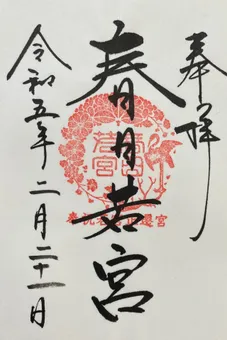 奉拝
春日若宮
令和五年二月二十一日